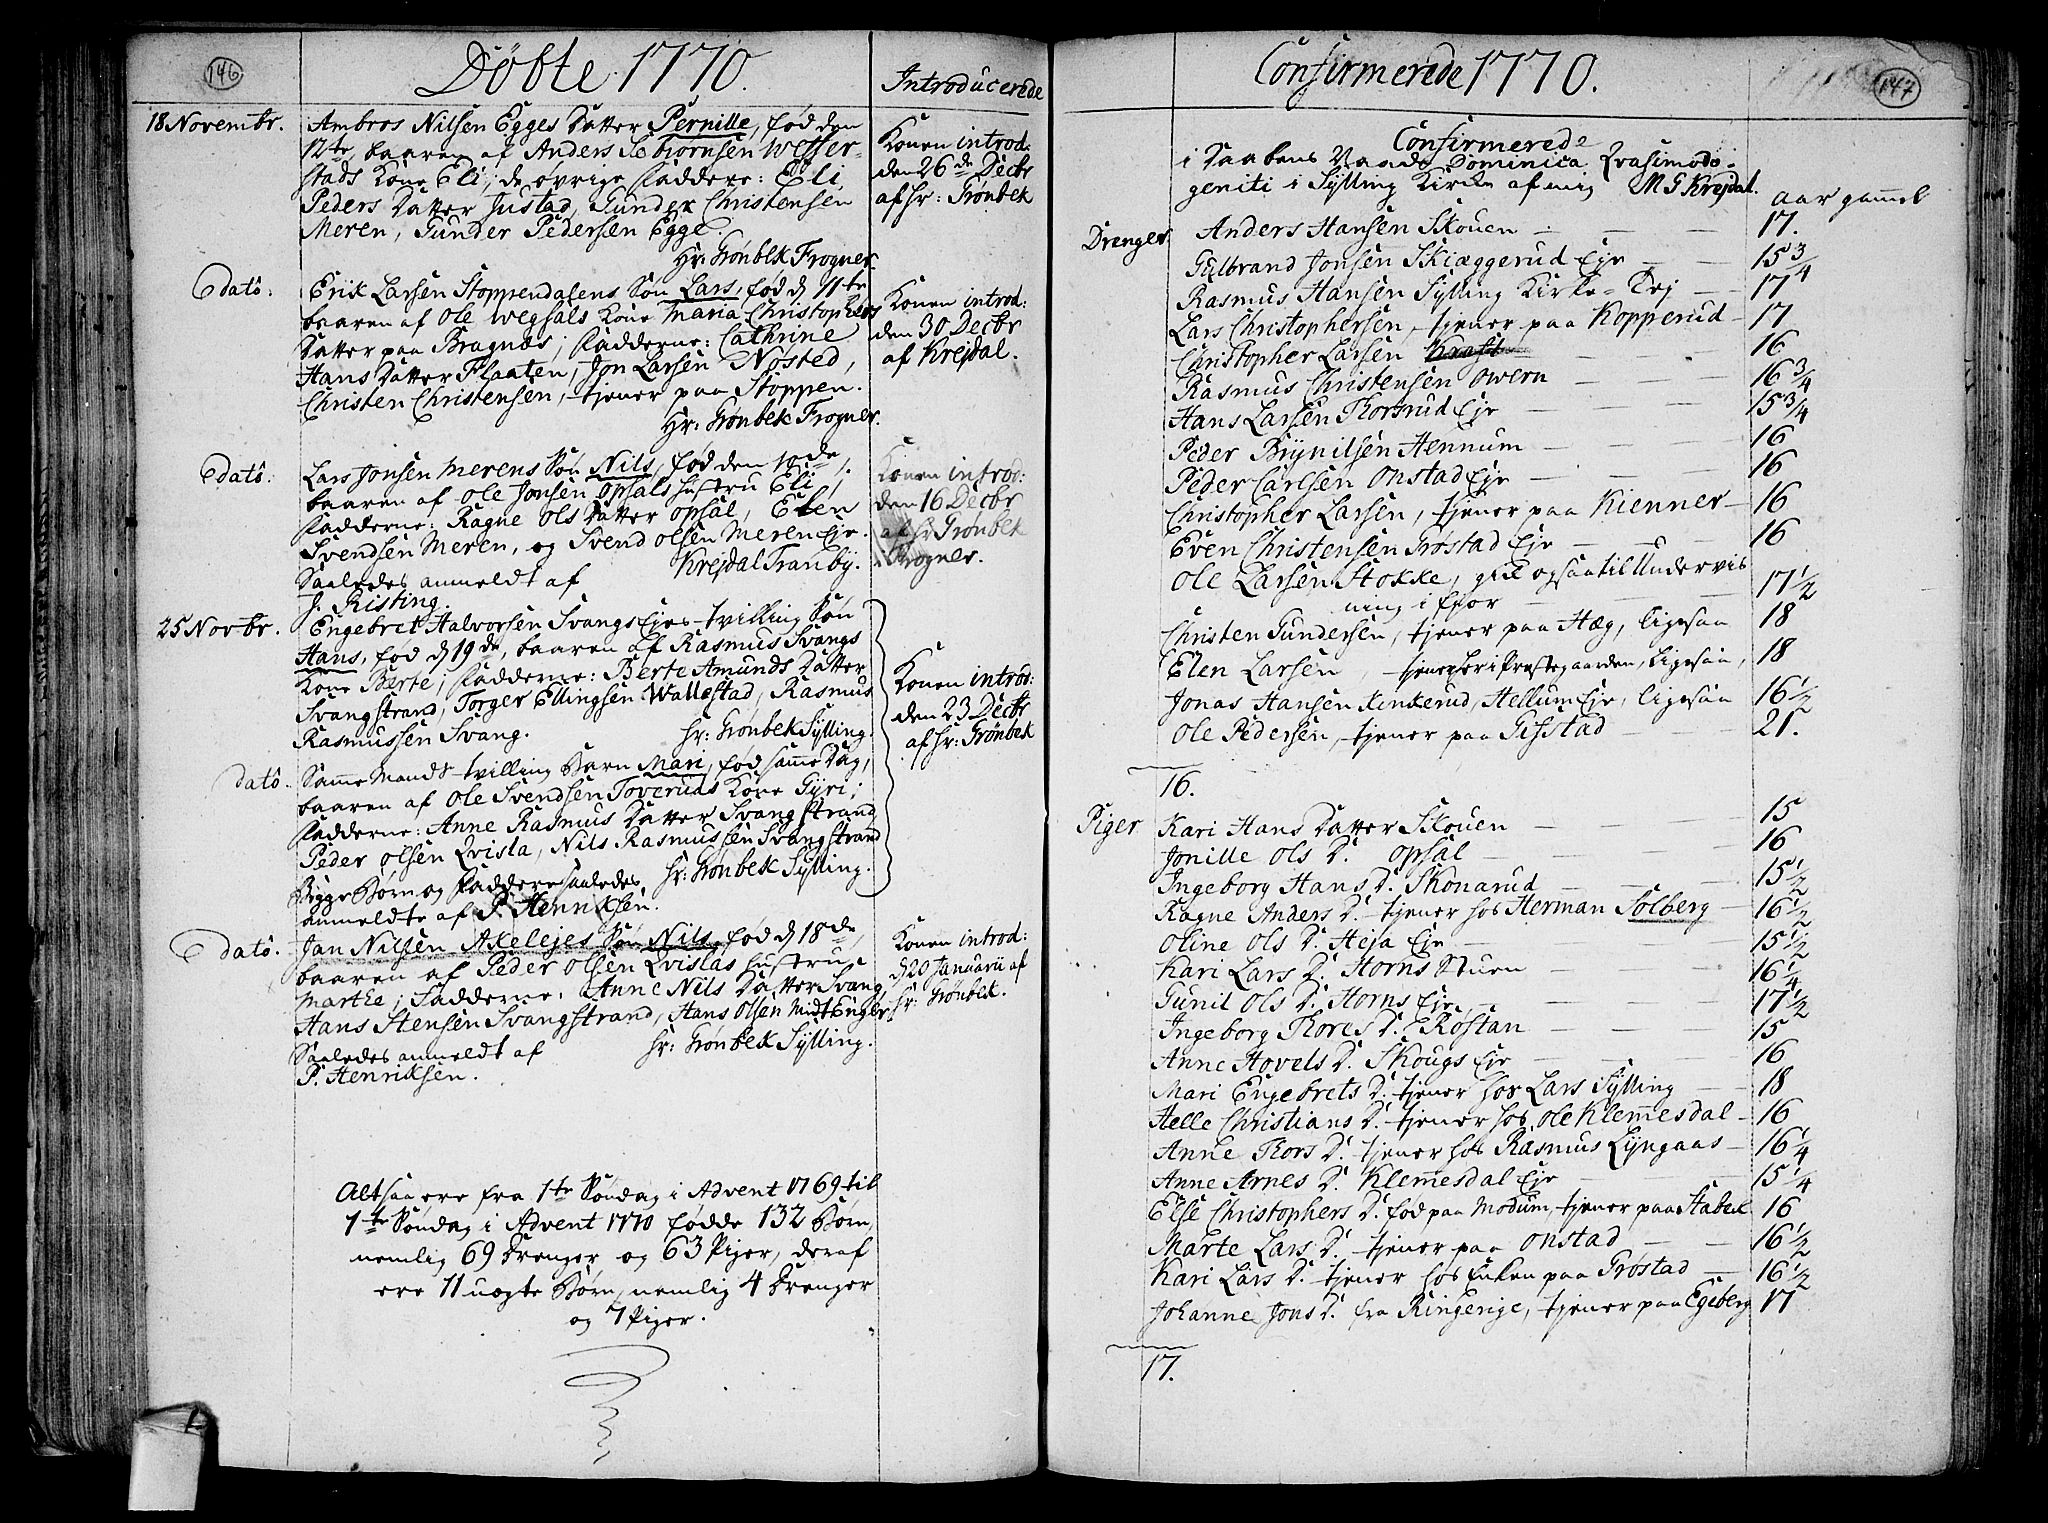 146
Döbte 1770.
Introducerede
18 Novembr.
Ambros Nilsen Egges Datter Pernille, fød den
12te, baaren af Anders Sebjörnsen Wefser-
stads Kone Eli; de øvrige Faddere: Eli
Peders Datter Justad, Gunder Christensen
Meren, Gunder Pedersen Egge.
Hr: Grönbek Frogner.
Konen introd:
den 26de Decbr
af Hr: Grönbek
Edatô.
Erik Larsen Stoppendalens Søn Lars, fød d 11te
baaren af Ole Wegsals Kone Maria Christophers
Datter paa Bragnæs; Fadderne: Cathrine
Hans Datter Flaaten, Jon Larsen Nøsted,
Christen Christensen, tjener paa Stoppen.
Hr: Grönbek Frogner.
Konen introd:
den 30 Decbr
af Krejdal.
Edatô.
Lars Jonsen Merens Søn Nils, fød den 10de,
baaren af Ole Jonsen Opsals Hustru Eli;
Fadderne: Ragne Ols Datter Opsal, Elen
Svendsen Meren, og Svend Olsen Meren Eje.
Saaledes anmeldt af
Krejdal Tranby.
J. Kisting.
Konen introd:
den 16 Decbr
af Hr Grönbek
i Frogner.
25 Novbr.
Engebret Halvorsen Svangs Ejes tvilling Søn
Hans, fød d 19de, baaren af Rasmus Svangs
Kone Berte; Fadderne: Berte Amunds Datter
Svangstrand, Torger Ellingsen Wallestad, Rasmus
Rasmussen Svang.
Hr: Grönbek Sylling.
Konen introd:
den 23 Decbr
af Hr: Grönbek
datô.
Samme Mands tvilling Barn Mari, fød samme Dag,
baaren af Ole Svendsen Toveruds Kone Gyri;
Fadderne: Anne Rasmus Datter Svangstrand
Peder Olsen Qvisla, Nils Rasmussen Svangstrand
Hr: Grönbek Sylling.
Begge Børn og Faddere saaledes
anmeldte af P. Henriksen.
Edatô.
Jan Nilsen Axelejes Søn Nils, fød d 18de,
baaren af Peder Olsen Qvislas Hustru
Marthe; Fadderne: Anne Nils Datter Svang
Hans Stensen Svangstrand, Hans Olsen Midt Enger
Saaledes anmeldt af
Hr: Grönbek Sylling.
P. Henriksen.
Konen introd:
d 20 Januarii af
Hr: Grönbek.
Altsaa ere fra 1te Søndag i Advent 1769 til
1te Søndag i Advent 1770 fødde 132 Børn,
nemlig 69 Drenger og 63 Piger, deraf
ere 11 uægte Børn, nemlig 4 Drenger
og 7 Piger.
147
Confirmerede 1770.
Confirmerede
i Daabens Naade Dominica Qvasimodo-
geniti i Sylling Kirke af mig M G Krejdal.
aar gammel
Drenger
Anders Hansen Skouen — 17.
Gulbrand Jonsen Skiæggerud Eje — 15 3/4
Rasmus Hansen Sylling Kirke-Ej — 17
Lars Christophersen, tjener paa Kopperud — 17
Christopher Larsen — 16
Rasmus Christensen Owern — 16 3/4
Hans Larsen Thorsrud Eje — 15 3/4
Peder Brynilsen Hennum — 16
Peder Carlsen Onstad Eje — 16
Christopher Larsen, tjener paa Kienner — 16
Even Christensen Grøstad Eje — 16
Ole Larsen Stokke, gik ogsaa til Undervis
ning i Fjor — 17 1/2
Christen Gundersen, tjener paa Hæg, ligesaa 18
Elen Larsen, tjener her i Præstegaarden, Ligesaa, 18
Jonas Hansen Kinkerud, Hellum Eje, ligesaa 16 1/2
Ole Pedersen, tjener paa Gifstad 21.
16.
Piger
Kari Hans Datter Skouen — 15
Jonille Ols D. Opsal — 16
Ingeborg Hans D. Skonarud — 15 1/2
Ragne Anders D. tjener hos Herman Solberg — 16 1/2
Oline Ols D. Heja Eje — 15 1/2
Kari Lars D. Horns Stuen — 16 1/4
Gunil Ols D. Horns Eje — 17 1/2
Ingeborg Thores D. Røstan — 15
Anne Hovels D. Skougs Eje — 16
Mari Engebrets D. tjener hos Lars Sylling — 18
Helle Christians D. tjener hos Ole Klemmesdal — 16
Anne Thors D. tjener hos Rasmus Lyngaas — 16 1/4
Anne Arnes D. Klemmesdal Eje — 15 1/4
Else Christophers D. fød paa Modum, tjener paa Stabek 16
Marte Lars D. tjener paa Onstad — 16 1/2
Kari Lars D. tjener hos Enken paa Grøstad — 16 1/2
Johanne Jons D. fra Ringerige, tjener paa Egeberg 17
17.